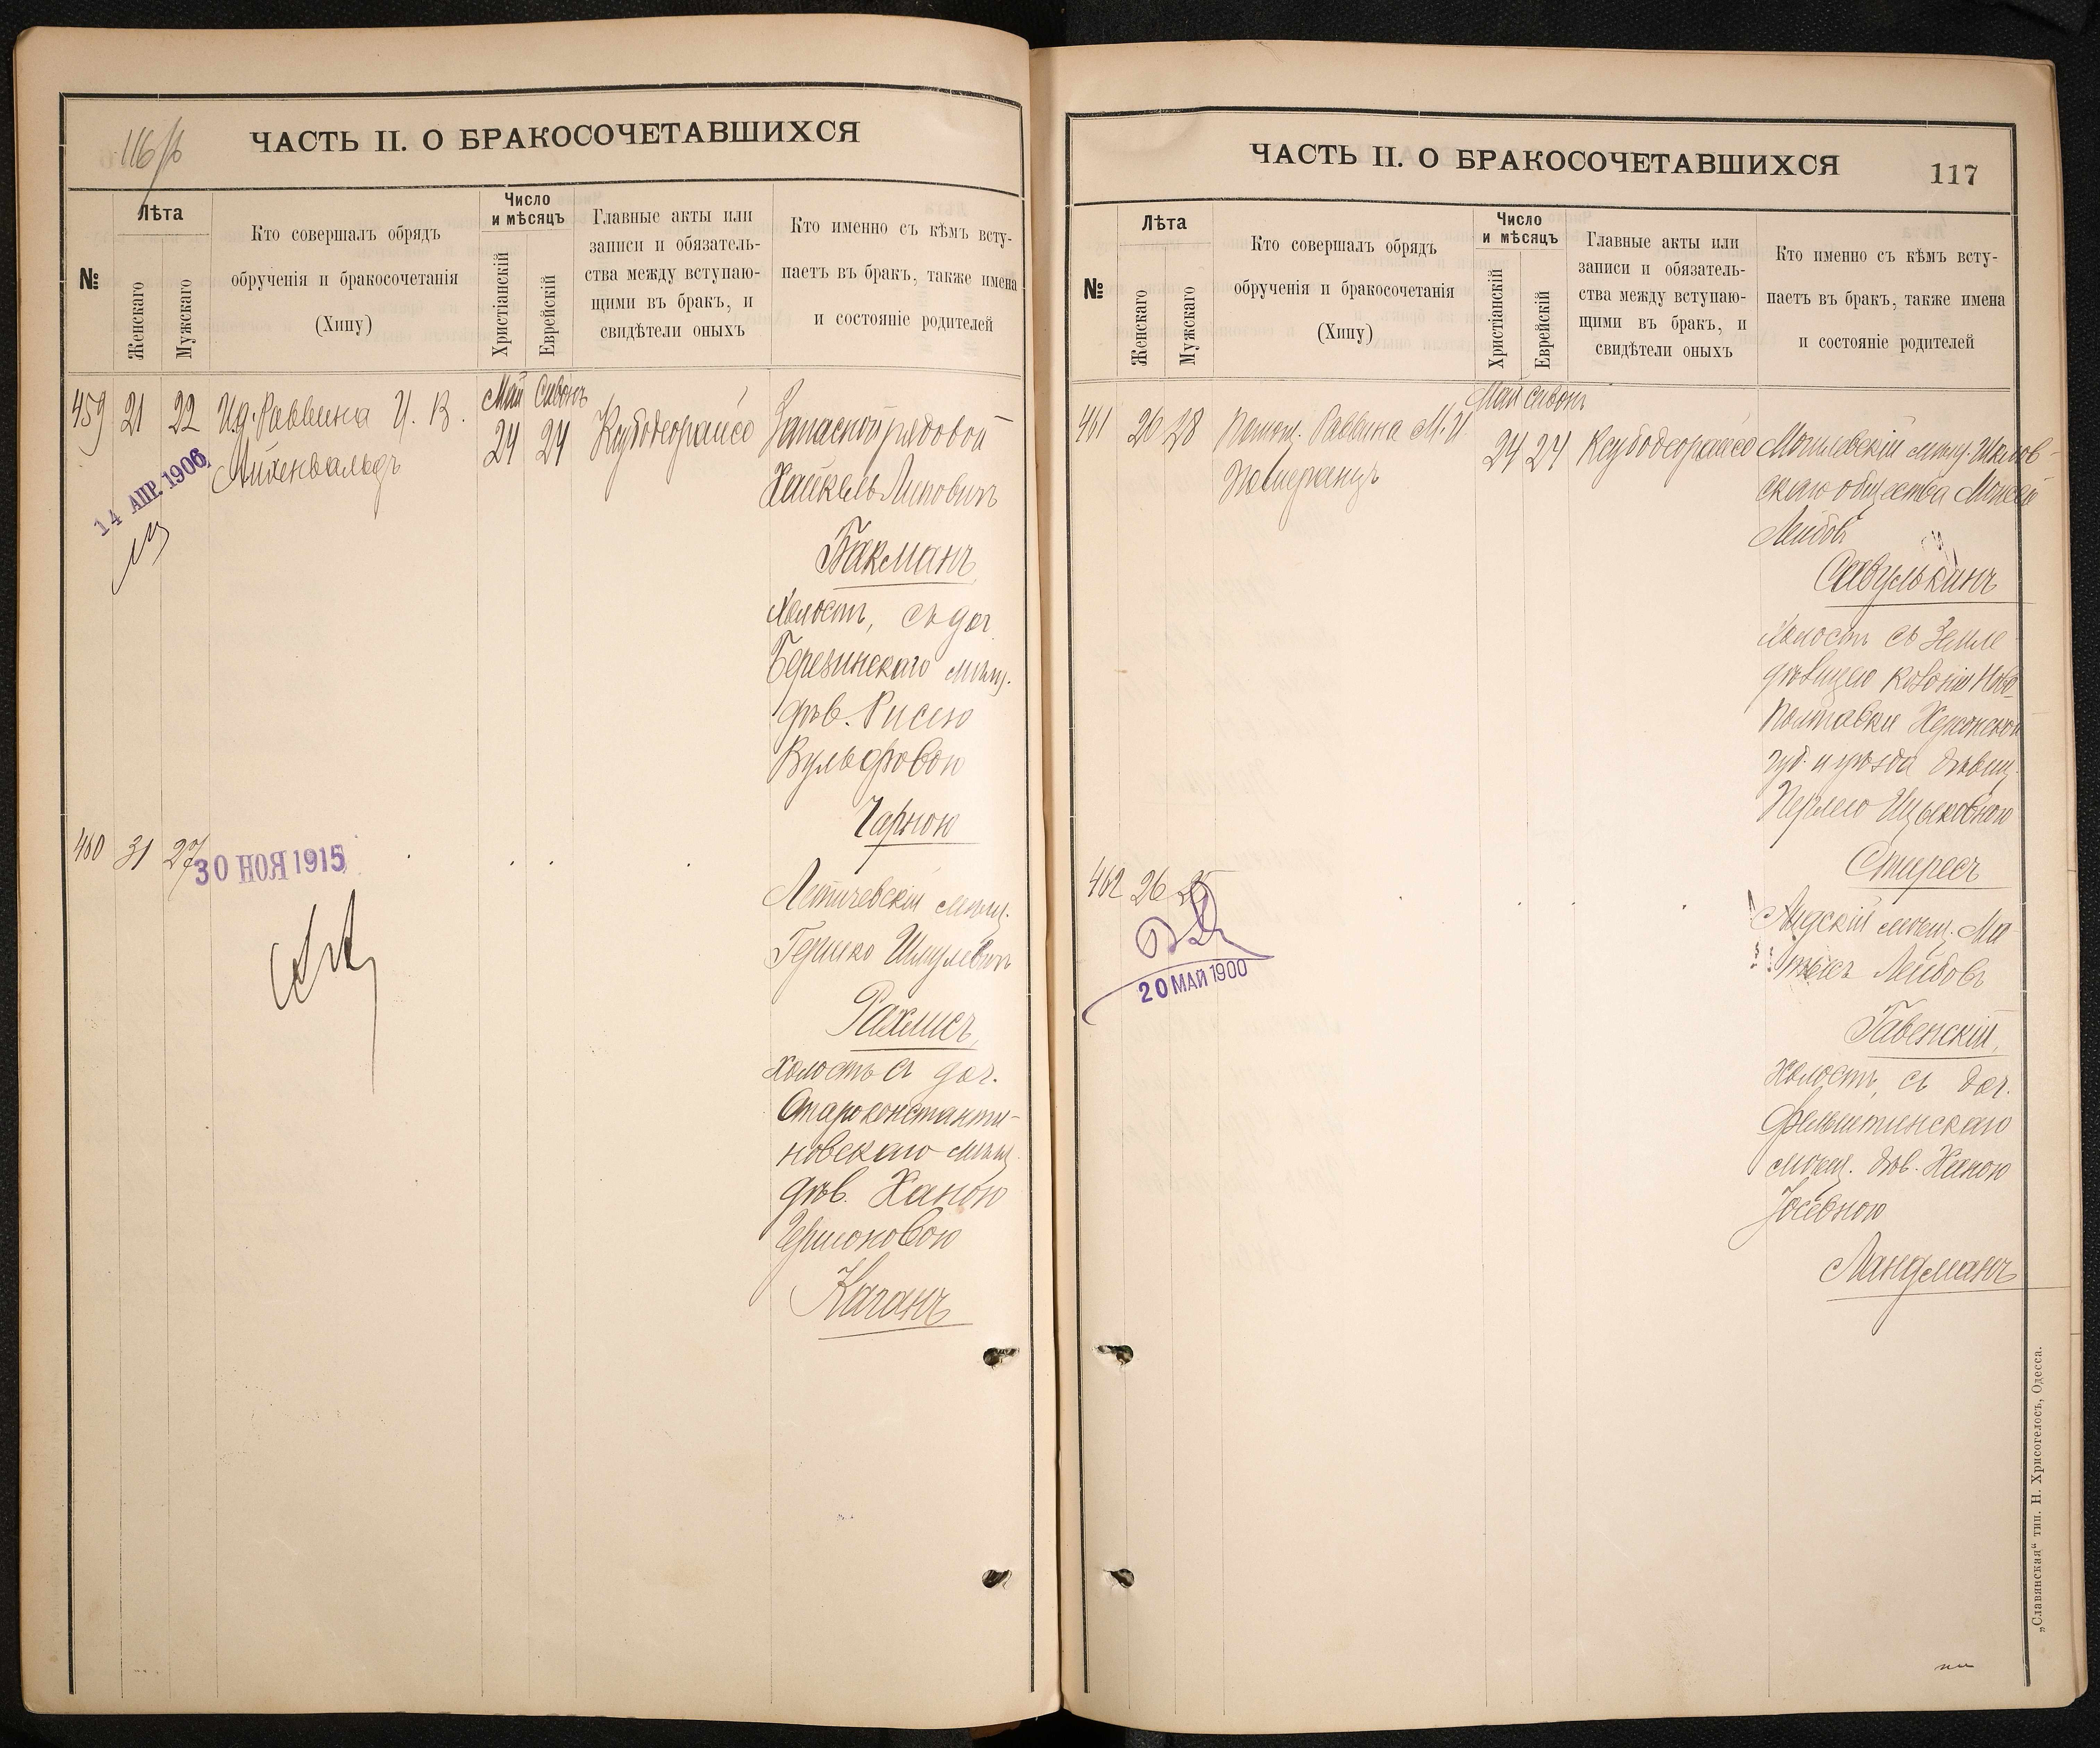 116 об
ЧАСТЬ II. О БРАКОСОЧЕТАВШИХСЯ
№
Лѣта
Женскаго
Мужскаго
Кто совершалъ обрядъ
обрученія и бракосочетанія
(Хипу)
Число
и мѣсяцъ
Христіанскій
Еврейскій
Главные акты или
записи и обязатель-
ства между вступаю-
щими въ бракъ, и
свидѣтели оныхъ
Кто именно съ кѣмъ всту-
паетъ въ бракъ, также имена
и состояніе родителей
459 21 22
И.д. Раввина И. В.
Айхенвальдъ
Май Сивонъ
24 24
Запасной рядовой
Хайкель Липовичъ
Бакманъ,
холостъ, съ доч.
Березинскаго мѣщ.
дѣв. Рисею
Вульфовою
Чарною
14 АПР. 1906
460 31 27
30 НОЯ 1915
Летичевскій мѣщ.
Гершко Шмулевичъ
Рахлисъ,
холостъ съ доч.
Староконстанти-
новскаго мѣщ.
дѣв. Ханою
Гершоновою
Каганъ
ЧАСТЬ II. О БРАКОСОЧЕТАВШИХСЯ
117
№
Лѣта
Женскаго
Мужскаго
Кто совершалъ обрядъ
обрученія и бракосочетанія
(Хипу)
Число
и мѣсяцъ
Христіанскій
Еврейскій
Главные акты или
записи и обязатель-
ства между вступаю-
щими въ бракъ, и
свидѣтели оныхъ
Кто именно съ кѣмъ всту-
паетъ въ бракъ, также имена
и состояніе родителей
461 26 28
Помощ. Раввина М. И.
Померанцъ
Май Сивонъ
24 24
Могилевскій мѣщ. Шклов-
скаго общества Мовсей
Лейбовъ
Савулькинъ
холостъ съ Земле-
дѣльцею колоніи Ново-
Полтавки Херсонской
губ. и уѣзда дѣвиц.
Перлею Ицковною
Спиресъ
462 26 25
20 МАЙ 1900
Лидскій мѣщ. Ма-
тысъ Лейбовъ
Гавенскій,
холостъ, съ доч.
Фельштинскаго
мѣщ. дѣв. Ханою
Іосевною
Ландманъ
„Славянская“ тип. Н. Хрисогелосъ, Одесса.